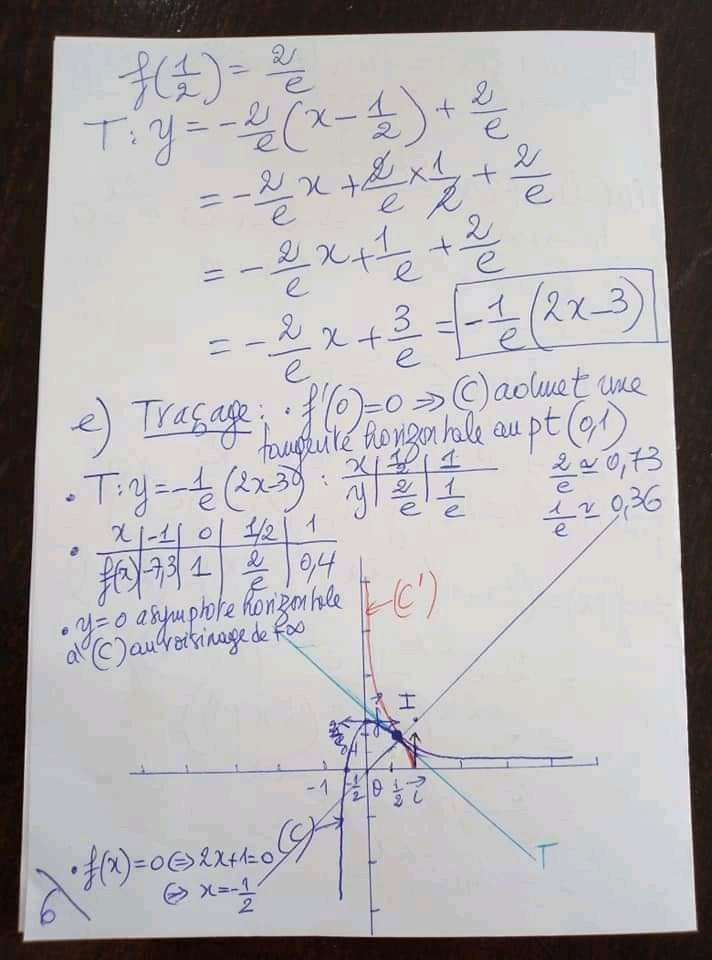 f(1/2) = 2/e
T : y = -2/e (x - 1/2) + 2/e
= -2/e x + 2/e × 1/2 + 2/e
= -2/e x + 1/e + 2/e
= -2/e x + 3/e = -1/e (2x-3)
e) Traçage : • f'(0)=0 ⇒ (C) admet une
tangente horizontale au pt (0,1)
• T: y = -1/e (2x-3) :
x | 1/2 | 1
y | 2/e | 1/e
2/e ≃ 0,73
1/e ≃ 0,36
• x | -1 | 0 | 1/2 | 1
f(x) | -7,3 | 1 | 2/e | 0,4
• y=0 asymptote horizontale
à (C) au voisinage de +∞
(C')
I
j
-1
-1/2
0
1/2
i
(C)
T
• f(x)=0 ⇔ 2x+1=0
⇔ x=-1/2
6